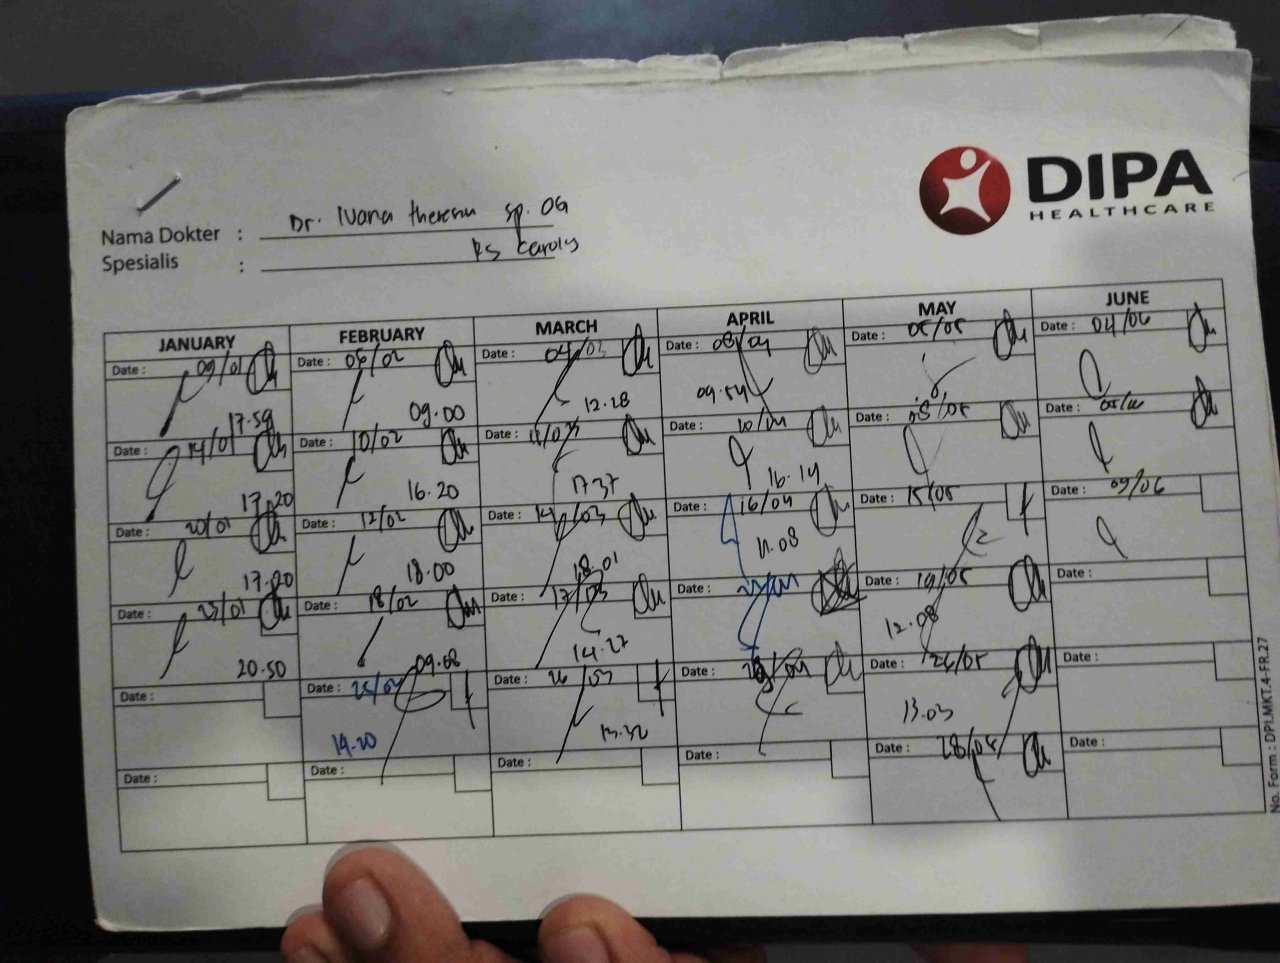 DIPA
HEALTHCARE
Nama Dokter : Dr. Ivana theresia sp. OG
Spesialis : RS Carolus
JANUARY FEBRUARY MARCH APRIL MAY JUNE
Date : 09/01 Date : 06/02 Date : 04/03 Date : 08/04 Date : 05/05 Date : 04/06
17.59 09.00 12.28 09.54
Date : 14/01 Date : 10/02 Date : 11/03 Date : 10/04 Date : 08/05 Date :
17.20 16.20 17.37 16.14
Date : 20/01 Date : 12/02 Date : 14/03 Date : 16/04 Date : 15/05 Date : 09/06
17.20 18.00 18.01 11.08
Date : 23/01 Date : 18/02 Date : 17/03 Date : Date : 19/05 Date :
20.50 09.08 14.27 12.08
Date : Date : 25/02 Date : 26/03 Date : Date : 26/05 Date :
14.20 13.32 13.03
Date : Date : Date : Date : Date : 28/05 Date :
No. Form : DPI.MKT.4-FR.27